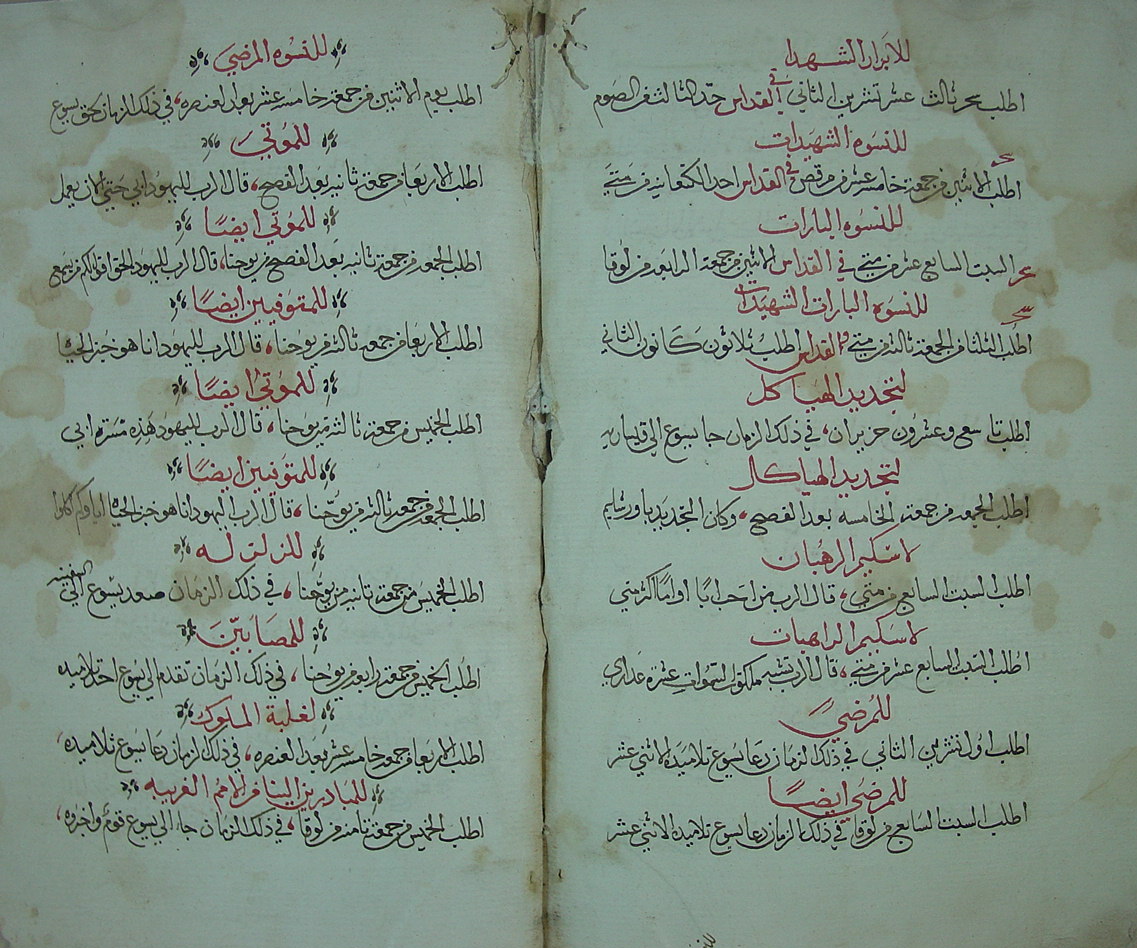 للابرار الشهدا
اطلب بحر ثالث عشر تشرين الثاني في القداس حد الثالث من الصوم
للنسوه الشهيدات
اطلب الاثنين من جمعة خامسه عشر من مرقص في القداس احد الكنعانيه من متي
للنسوه البارات
السبت السابع عشر من متي في القداس الاثنين من جمعة الرابعه من لوقا
للنسوه البارات الشهيدات
اطلب الثلثا من الجمعة ثالثة من متي و القداس اطلب ثلاثون كانون الثاني
لتجديد الهياكل
اطلب تاسع وعشرون حزيران، في ذلك الزمان جا يسوع الي قيساريه
لتجديد الهياكل
اطلب الجمعه من جمعة الخامسه بعد الفصح، وكان التجديد باورشليم
لاسكيم الرهبان
اطلب السبت السابع من متي، قال الرب من احب ابا او اما اكثر مني
لاسكيم الراهبات
اطلب السبت السابع عشر من متي، قال الرب تشبه ملكوت السموات عشرة عداري
للمرضي
اطلب اول تشرين الثاني في ذلك الزمان دعا يسوع تلاميده الاثني عشر
للمرضي ايضا
اطلب السبت السابع من لوقا في ذلك الزمان دعا يسوع تلاميده الاثني عشر
للنسوه المرضي
اطلب يوم الاثنين من جمعة خامسة عشر بعد العنصره، في ذلك الزمان لحق يسوع
للموتي
اطلب الاربعا من جمعة ثانيه بعد الفصح، قال الرب لليهود ابي حتي الان يعمل
للموتي ايضا
اطلب الجمعه من جمعة ثانيه بعد الفصح من يوحنا، قال الرب لليهود الحق اقول لكم من يسمع
للمتوفيين ايضا
اطلب الاربعا من جمعة ثالثة من يوحنا، قال الرب لليهود انا هو خبز الحياه
للموتي ايضا
اطلب الخميس من جمعة ثالثة من يوحنا، قال الرب لليهود هذه مسرة ابي
للمتوفيين ايضا
اطلب الجمعه من جمعة ثالثة من يوحنا، قال الرب لليهود انا هو خبز الحياه اباوكم اكلوا
للزلزله
اطلب الخميس من جمعة ثانيه من يوحنا، في ذلك الزمان صعد يسوع الي السفينه
للمصابين
اطلب الخميس من جمعة رابعه من يوحنا، في ذلك الزمان تقدم الي يسوع احد تلاميده
لغلبة الملوك
اطلب الاربعا من جمعة خامسة عشر بعد العنصره، في ذلك الزمان دعا يسوع تلاميده،
للمبادرين الينا من الامم الغريبه
اطلب الخميس من جمعة ثامنه من لوقا، في ذلك الزمان جا الي يسوع قوم واخبروه،